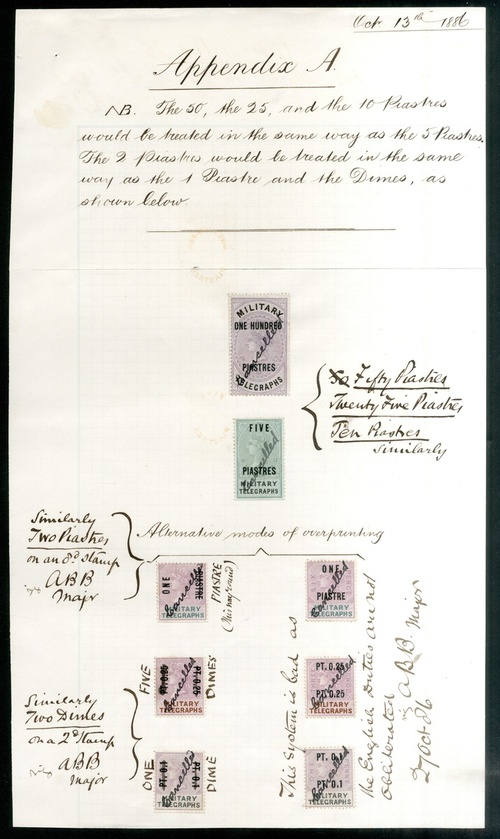 Oct 13th 1886
Appendix A.
NB. The 50, the 25, and the 10 Piastres
would be treated in the same way as the 5 Piastres.
The 2 Piastres would be treated in the same
way as the 1 Piastre and the Dimes, as
shown below.
MILITARY
ONE HUNDRED
PIASTRES
TELEGRAPHS
Cancelled
Fifty Piastres
Twenty Five Piastres
Ten Piastres
Similarly
FIVE
PIASTRES
MILITARY
TELEGRAPHS
Cancelled
Similarly
Two Piastres
on an 8d stamp
ABB
Major
Alternative modes of overprinting
ONE
PIASTRE
MILITARY
TELEGRAPHS
Cancelled
PIASTRE
ONE
PIASTRE
MILITARY
TELEGRAPHS
Cancelled
FIVE
PT. 0.25
PT. 0.25
MILITARY
TELEGRAPHS
Cancelled
DIMES
PT. 0.25
PT. 0.25
MILITARY
TELEGRAPHS
Cancelled
Similarly
Two Dimes
on a 2d stamp
ABB
Major
ONE
PT. 0.1
PT. 0.1
MILITARY
TELEGRAPHS
Cancelled
DIME
PT. 0.1
PT. 0.1
MILITARY
TELEGRAPHS
Cancelled
This system is bad as
the English Duties are not
obliterated
ABB. Major
27 Oct 86